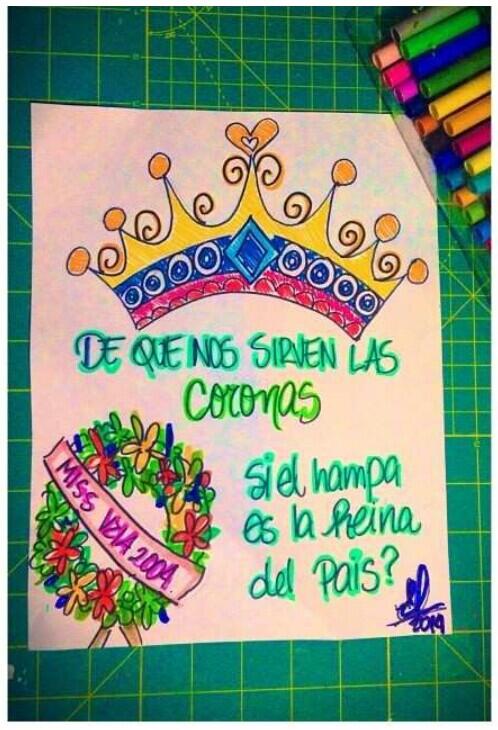 DE QUE NOS SIRVEN LAS
Coronas
si el hampa
es la Reina
del País?
MISS VZLA 2004
2014